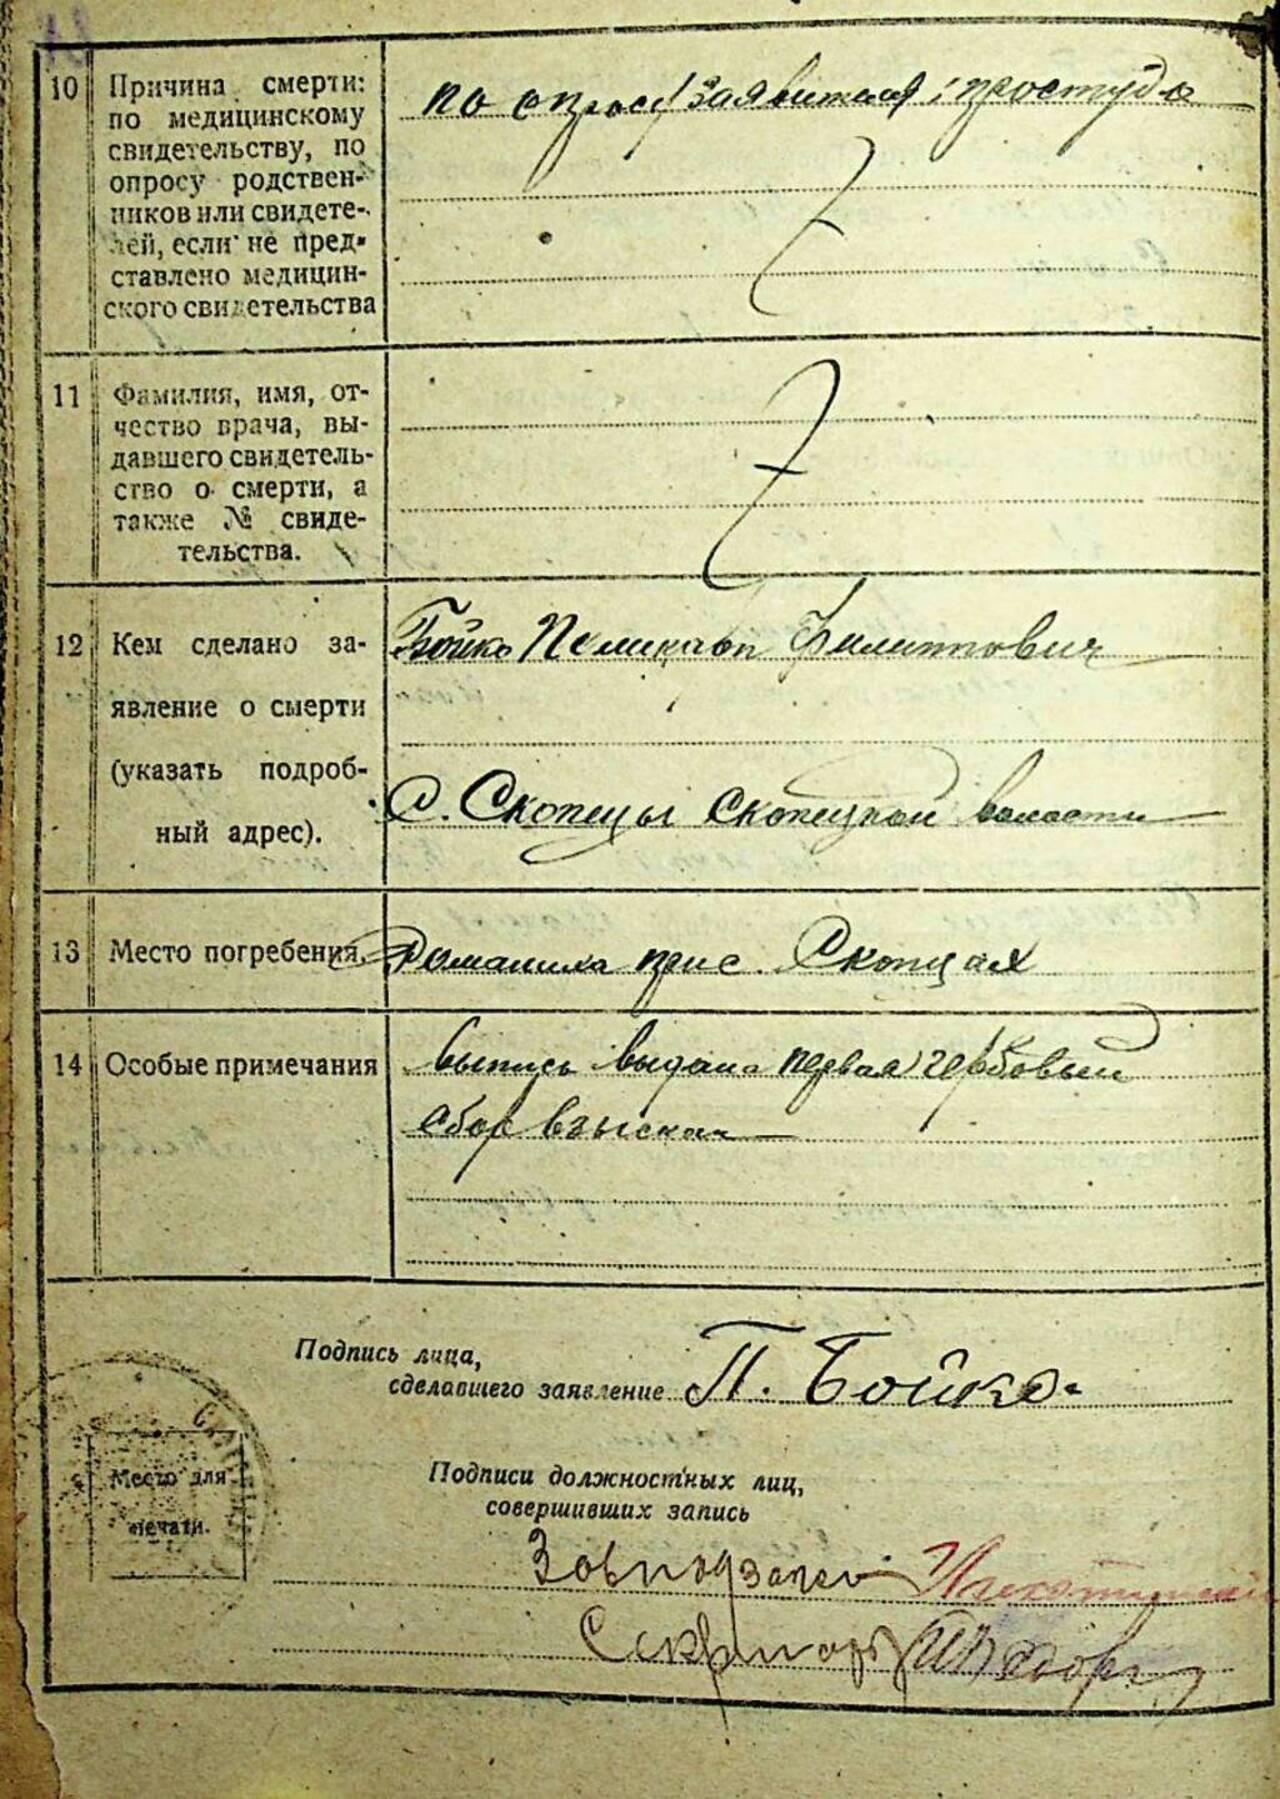 10
Причина смерти:
по медицинскому
свидетельству, по
опросу родствен-
ников или свидете-
лей, если не пред-
ставлено медицин-
ского свидетельства
по опросу заявителя: простуда
11
Фамилия, имя, от-
чество врача, вы-
давшего свидетель-
ство о смерти, а
также № свиде-
тельства.
12
Кем сделано за-
явление о смерти
(указать подроб-
ный адрес).
Бойко Поликарп Филиппович
с. Скопцы Скопецкой волости
13
Место погребения.
Романиха при с. Скопцах
14
Особые примечания
выпись выдана первая гербовый
сбор взыскан
Подпись лица,
сделавшего заявление П. Бойко.
Место для
печати.
Подписи должностных лиц,
совершивших запись
Завподзагс
Секретарь